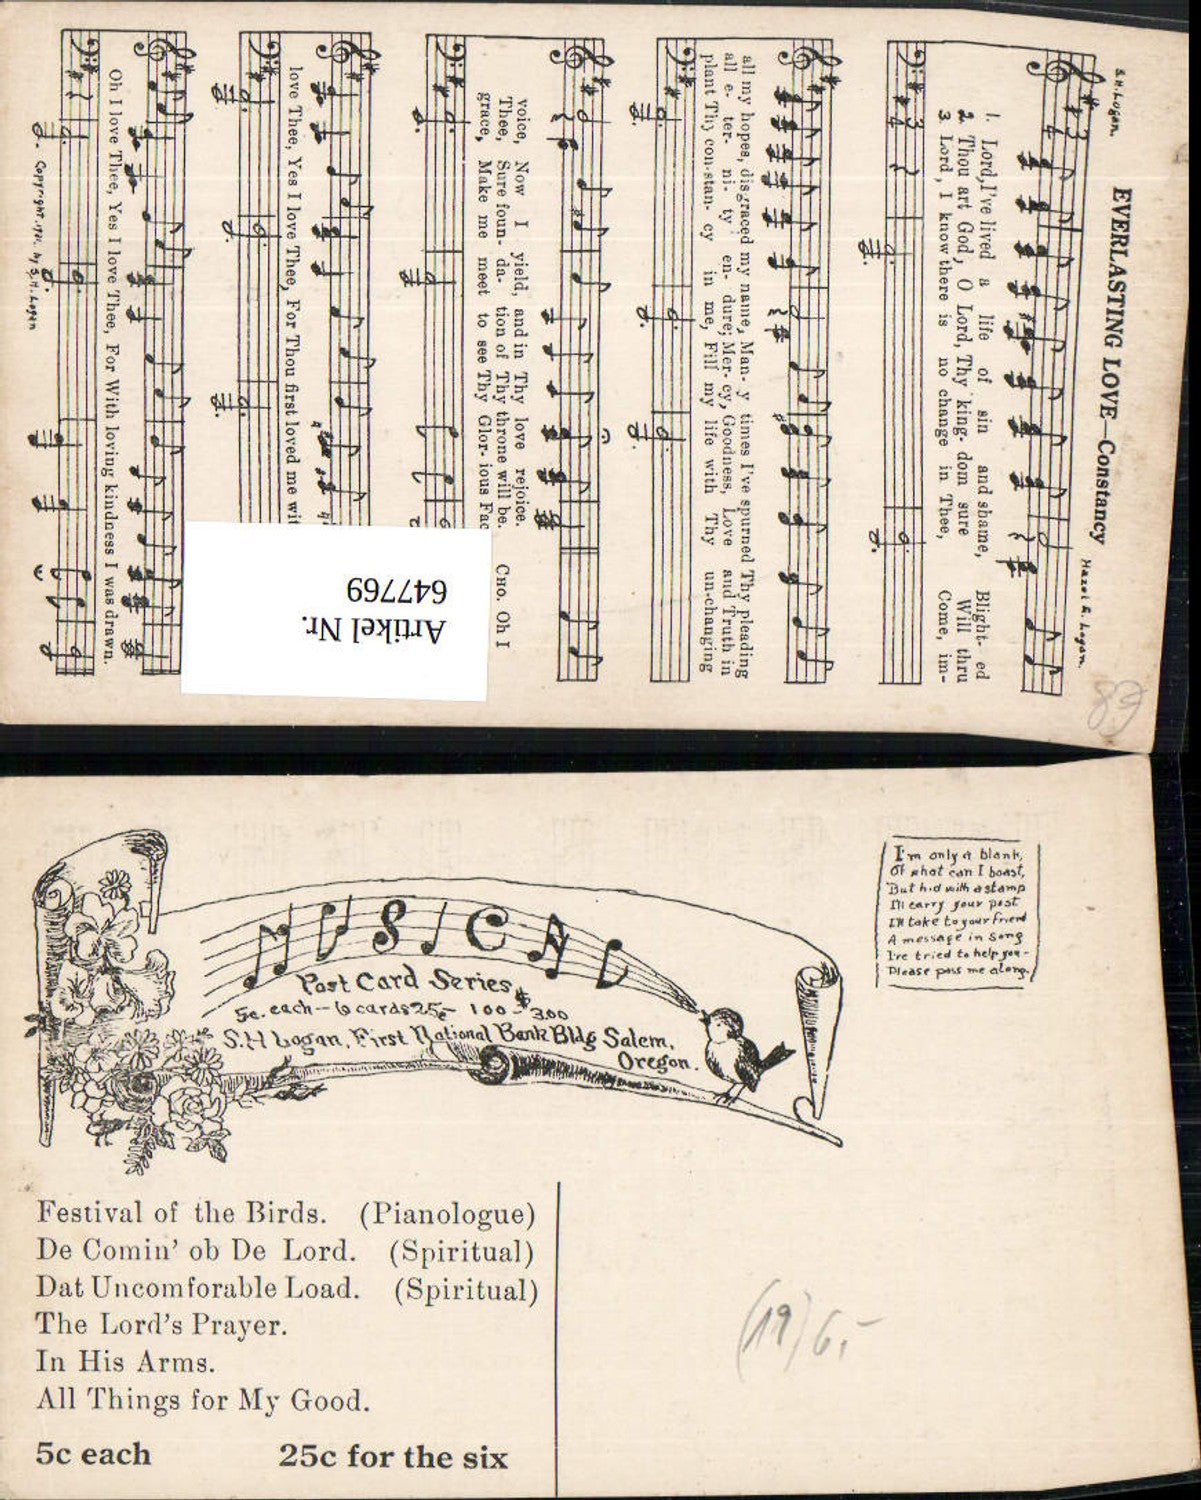 EVERLASTING LOVE—Constancy
S.H. Logan.
Hazel R. Logan.
1. Lord, I've lived a life of sin and shame, Blight- ed
2 Thou art God, O Lord, Thy king- dom sure Will thru
3 Lord, I know there is no change in Thee, Come, im-
all my hopes, disgraced my name, Man- y times I've spurned Thy pleading
all e- ter- ni- ty en- dure; Mer- cy, Goodness, Love and Truth in
plant Thy con-stan- cy in me, Fill my life with Thy un-changing
voice, Now I yield, and in Thy love rejoice.
Thee, Sure foun- da- tion of Thy throne will be. CHO. Oh I
grace, Make me meet to see Thy Glor- ious Fac
love Thee, Yes I love Thee, For Thou first loved me wit
Oh I love Thee, Yes I love Thee, For With loving kindness I was drawn.
Copyright, by S.H. Logan
Artikel Nr.
647769
83
MUSICAL
Post Card Series
5c. each — 6 cards 25c — 100 — $3.00
S.H Logan, First National Bank Bldg Salem,
Oregon.
I'm only a blank,
Of what can I boast,
But hid with a stamp
I'll carry your post
I'll take to your friend
A message in song
I've tried to help you-
Please pass me along.
Festival of the Birds. (Pianologue)
De Comin' ob De Lord. (Spiritual)
Dat Uncomforable Load. (Spiritual)
The Lord's Prayer.
In His Arms.
All Things for My Good.
5c each 25c for the six
(19) 6,-